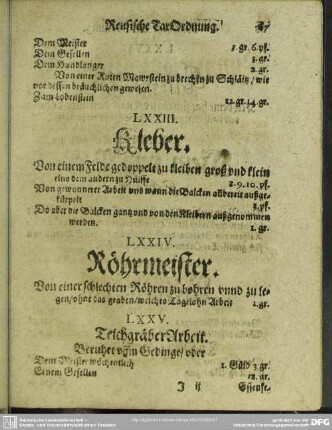 Reusische TaxOrdnung.
Dem Meister 3. gr. 6. pf.
Dem Gesellen 3. gr.
Dem Handlanger 2. gr.
Von einer Ruten Mawrstein zu brechen zu Schläitz / wie
vor dessen bräuchlichen gewesen.
Zum Lobenstein 12. gr. 14. gr.
LXXIII.
Kleber.
Von einem Felde gedoppelt zu kleiben groß vnd klein
eins dem andern zu Hülffe 8. 9. 10. pf.
Von gewonnener Arbeit vnd wann die Balcken allbereit außge-
3. pf.
Do aber die Balcken gantz vnd von den Kleibern außgenommen
werden. 1. gr.
LXXIV.
Röhrmeister.
Von einer schlechten Röhren zu bohren vnnd zu le-
gen / ohne das graben / welches Tagelohn Arbeit 1. gr.
LXXV.
Teichgräber Arbeit.
Beruhet vffm Gedinge / oder
Dem Meister wöchentlich 1. Güld 3. gr.
Einem Gesellen 18. gr.
J ij